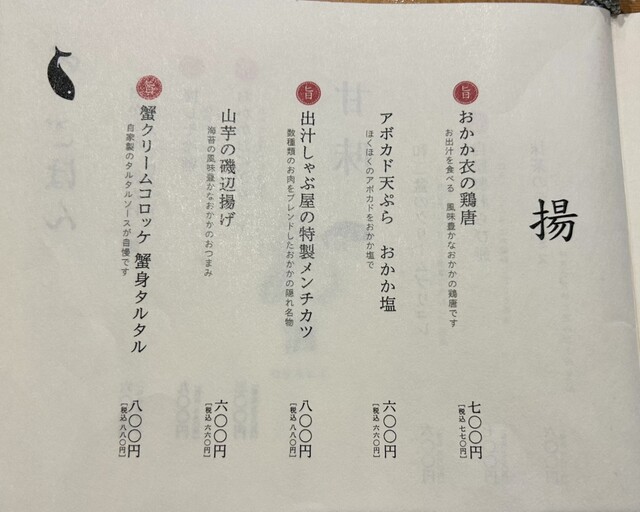 揚
旨
おかか衣の鶏唐
お出汁を食べる　風味豊かなおかかの鶏唐です
七〇〇円
［税込 七七〇円］
アボカド天ぷら　おかか塩
ほくほくのアボカドをおかか塩で
六〇〇円
［税込 六六〇円］
旨
出汁しゃぶ屋の特製メンチカツ
数種類のお肉をブレンドしたおかかの隠れ名物
八〇〇円
［税込 八八〇円］
山芋の磯辺揚げ
海苔の風味豊かなおかかのおつまみ
六〇〇円
［税込 六六〇円］
旨
蟹クリームコロッケ 蟹身タルタル
自家製のタルタルソースが自慢です
八〇〇円
［税込 八八〇円］